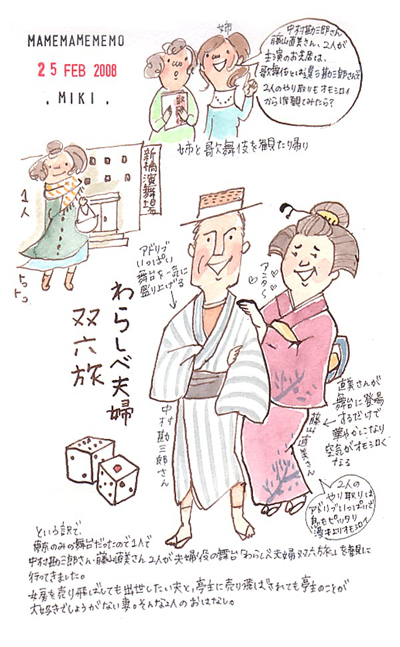 MAMEMAMEMEMO
25 FEB 2008
. MIKI .
姉
中村勘三郎さん
藤山直美さん、2人が
主演のお芝居は、
歌舞伎とは違う勘三郎さんで
2人のやり取りもオモシロイ
から1度観てみたら?
姉と歌舞伎を観た帰り
新橋演舞場
1人
トコ
トコ
アドリブ
いっぱい
舞台を一気に
盛り上げる
わらしべ夫婦
双六旅
中村勘三郎さん
アニさ〜ん
直美さんが
舞台に登場
するだけで
華やかになり
空気がオモシロく
なる
藤山直美さん
2人の
やり取りは
アドリブいっぱいで
息もピッタリ
という訳で、
東京のみの舞台だったので1人で
中村勘三郎さん・藤山直美さん2人が夫婦役の舞台「わらしべ夫婦双六旅」を観に
行ってきました。
女房を売り飛ばしても出世したい夫と、亭主に売り飛ばされても亭主のことが
大好きでしょうがない妻。そんな2人のおはなし。